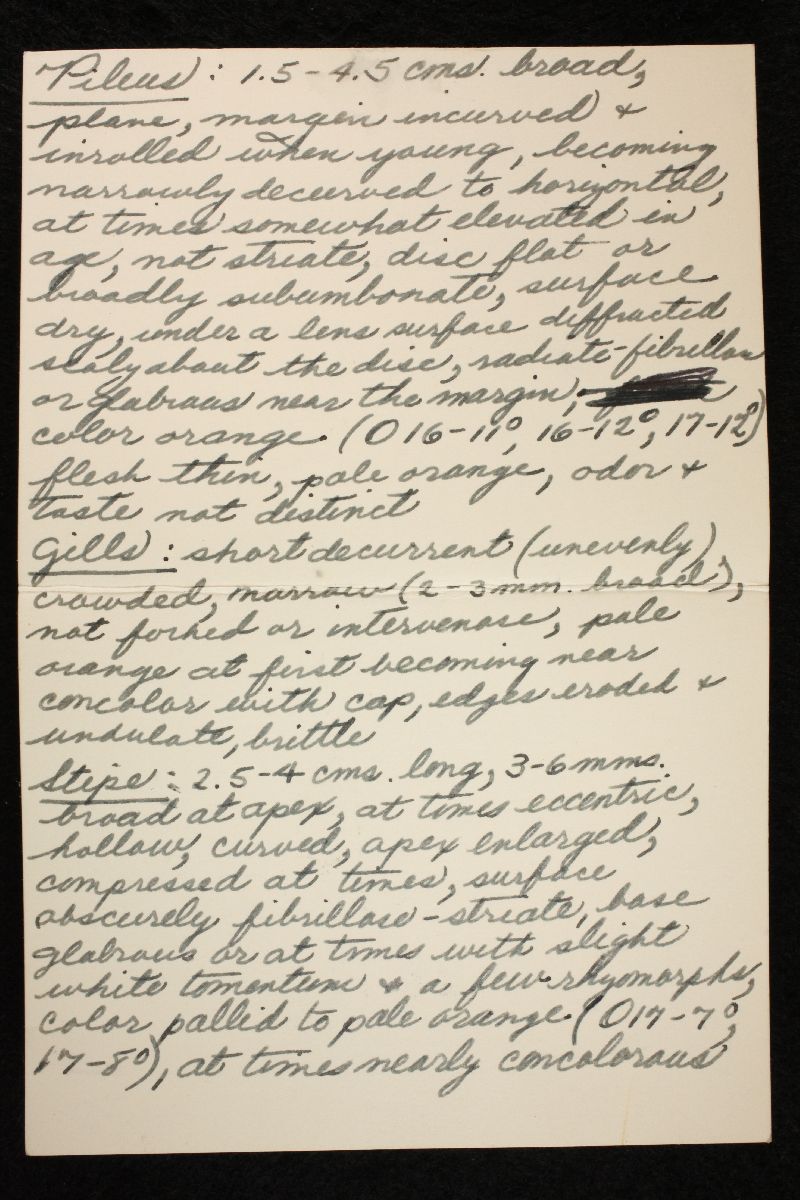 Pileus: 1.5-4.5 cms. broad,
plane, margin incurved &
inrolled when young, becoming
narrowly decurved to horizontal,
at times somewhat elevated in
age, not striate, disc flat or
broadly subumbonate, surface
dry, under a lens surface diffracted
scaly about the disc, radiate-fibrillose
or glabrous near the margin,
color orange. (O16-11°, 16-12°, 17-12°)
flesh thin, pale orange, odor &
taste not distinct
Gills: short decurrent (unevenly)
crowded, narrow (2-3 mm. broad),
not forked or intervenose, pale
orange at first becoming near
concolor with cap, edges eroded &
undulate, brittle
Stipe: 2.5-4 cms. long, 3-6 mms.
broad at apex, at times eccentric,
hollow, curved, apex enlarged,
compressed at times, surface
obscurely fibrillose-striate, base
glabrous or at times with slight
white tomentum & a few rhyomorphs,
color pallid to pale orange. (O17-7°,
17-8°), at times nearly concolorous